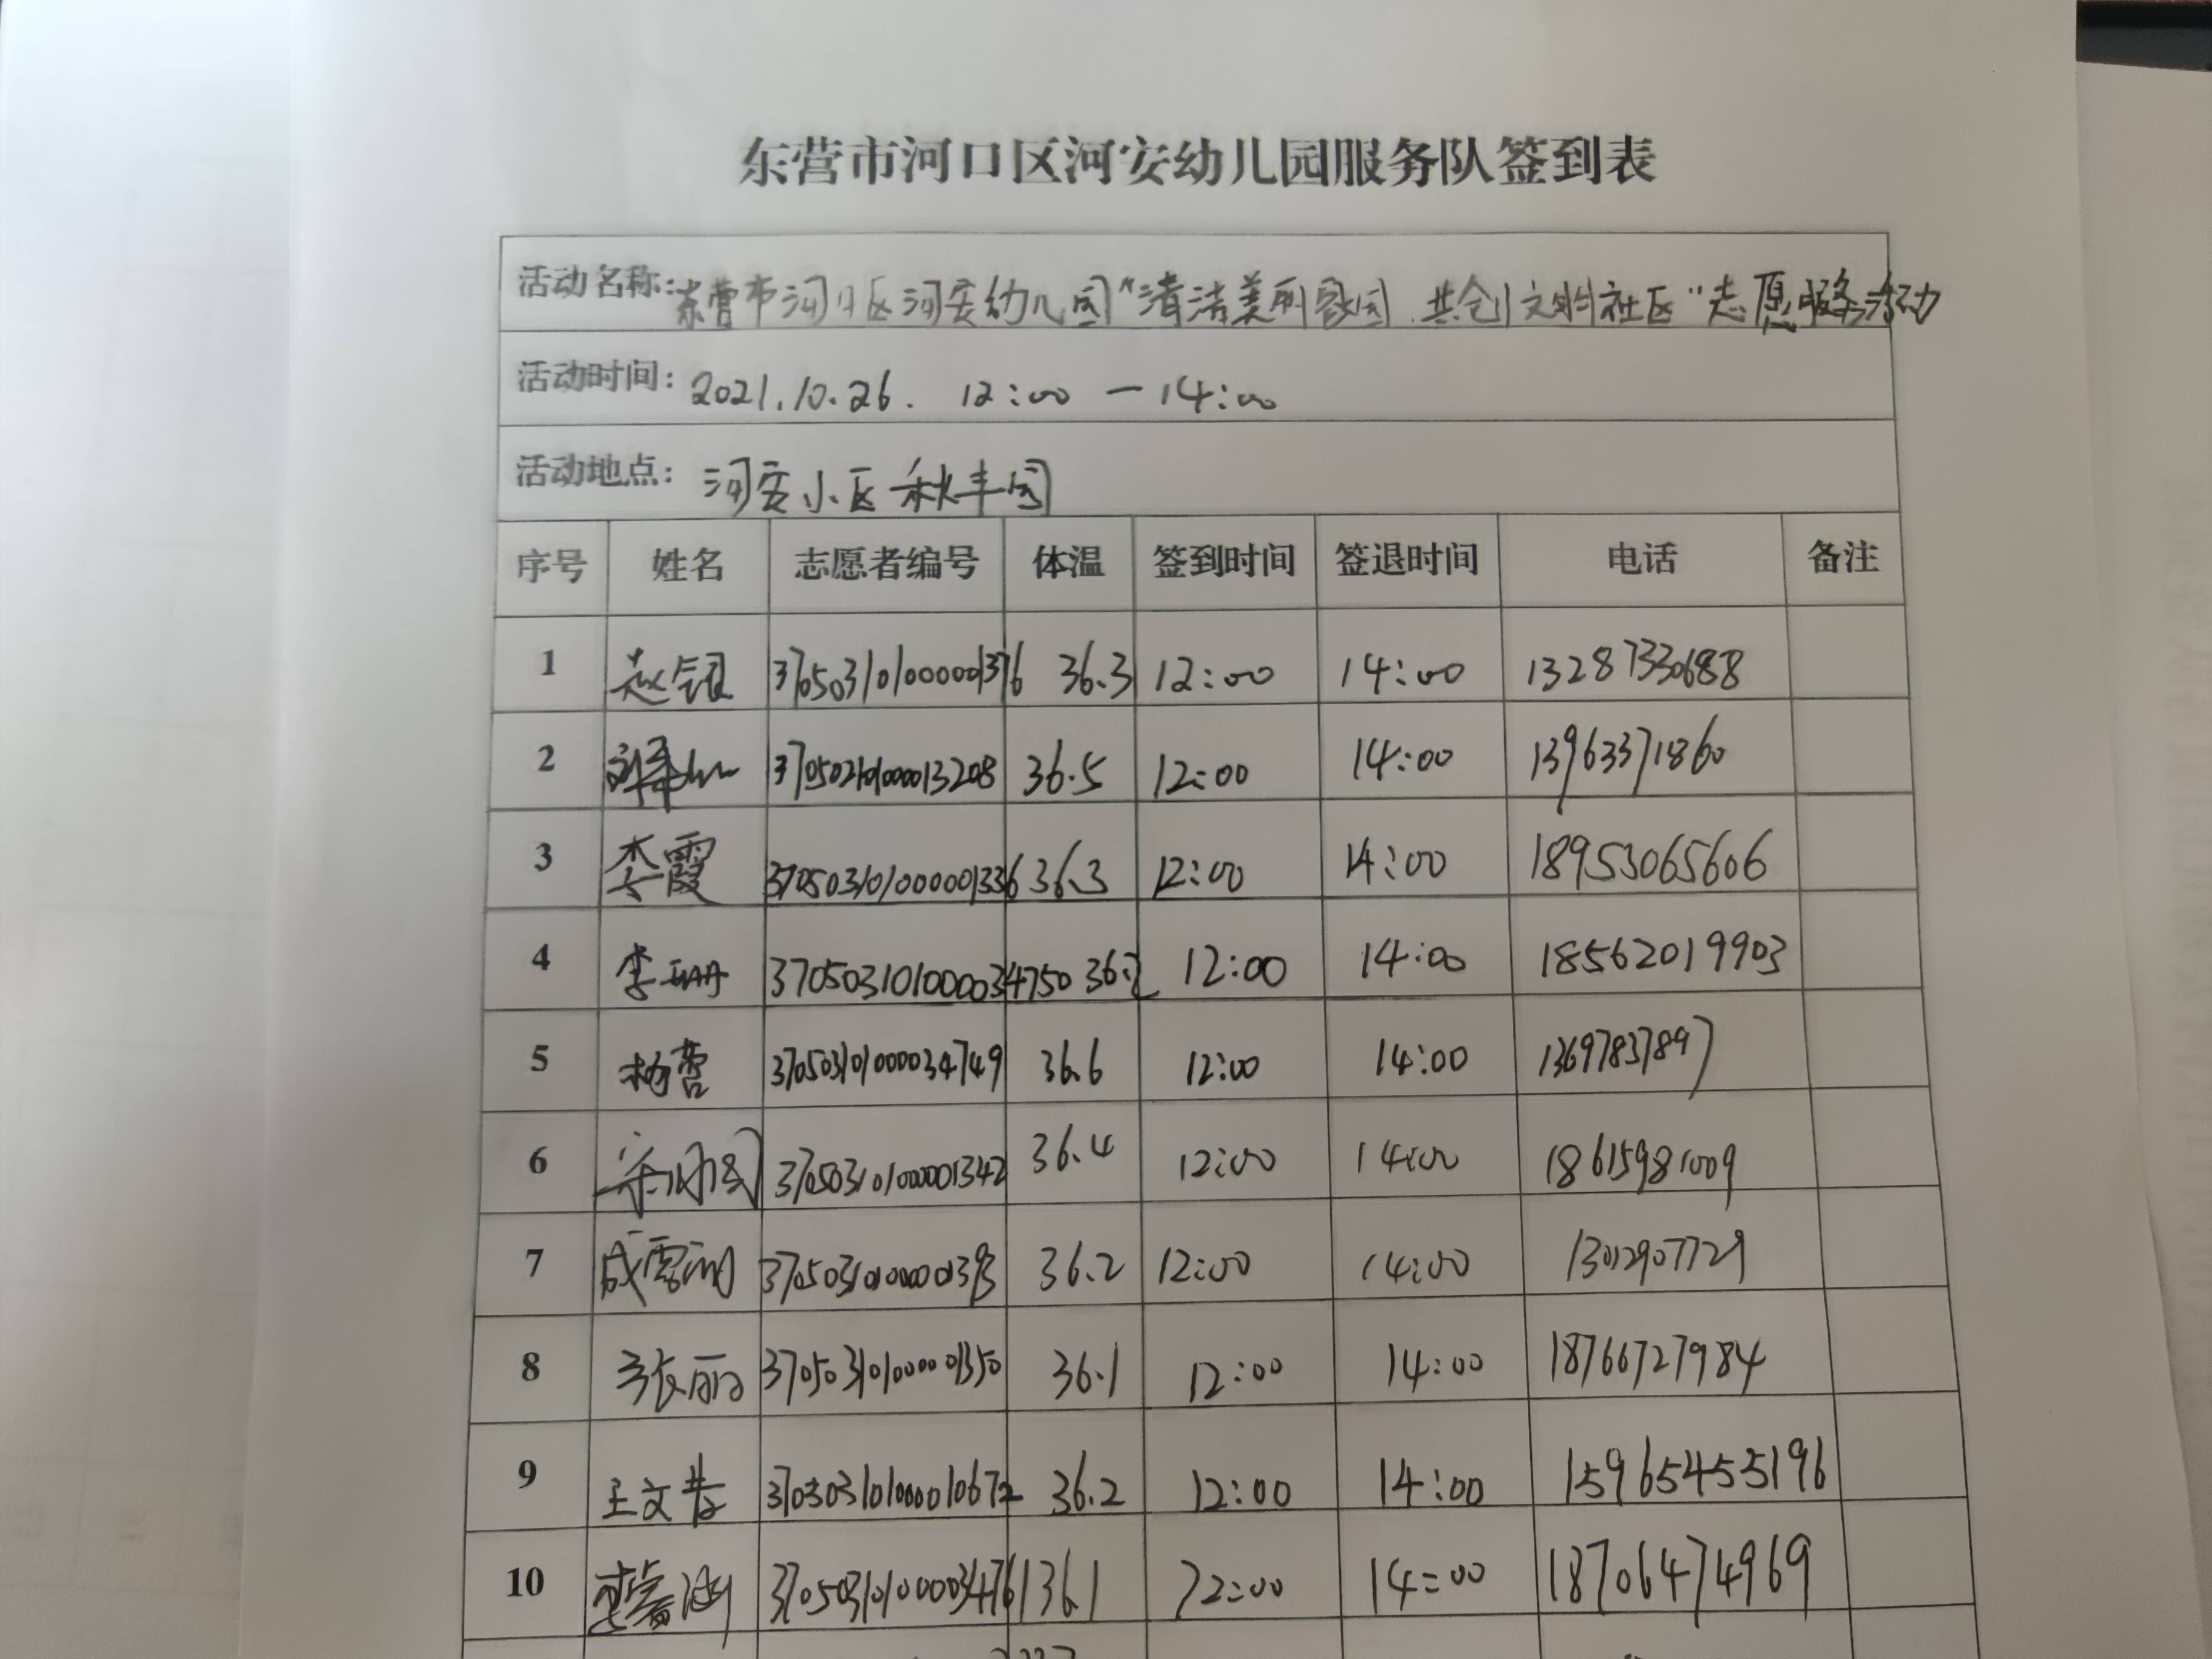 东营市河口区河安幼儿园服务队签到表
活动名称:东营市河口区河安幼儿园"清洁美丽家园 共创文明社区"志愿服务活动
活动时间: 2021.10.26. 12:00 — 14:00
活动地点: 河安小区秋丰园
序号 姓名 志愿者编号 体温 签到时间 签退时间 电话 备注
1 赵银 3705031010000001376 36.3 12:00 14:00 13287330688
2 370502101000013208 36.5 12:00 14:00 13963371860
3 李霞 3705031010000001336 36.3 12:00 14:00 18953065606
4 李珊 3705031010000034750 36.2 12:00 14:00 18562019903
5 杨营 370503101000034749 36.6 12:00 14:00 13697837897
6 370503101000001342 36.4 12:00 14:00 18615981009
7 成雪 36.2 12:00 14:00 13012907729
8 张丽 370503101000001350 36.1 12:00 14:00 18766727984
9 王文 36.2 12:00 14:00 15965455196
10 36.1 12:00 14:00 18706474969